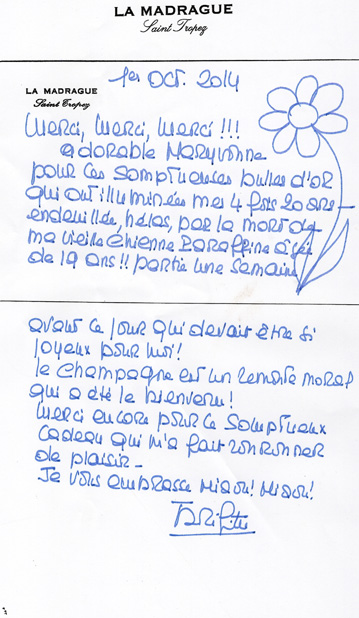 LA MADRAGUE
Saint Tropez
LA MADRAGUE
Saint Tropez
1er OCT. 2014
Merci, merci, merci !!!
adorable Maryvonne
pour ces somptueuses bulles d'or
qui ont illuminées mes 4 fois 20 ans -
endeuillée, hélas, par la mort de
ma vieille chienne Paraffine âgée
de 19 ans !! partie une semaine
avant ce jour qui devait être si
joyeux pour moi !
le champagne est un remonte moral
qui a été le bienvenu !
Merci encore pour ce somptueux
cadeau qui m'a fait ronronner
de plaisir -
Je vous embrasse Miaou ! Miaou !
Brigitte